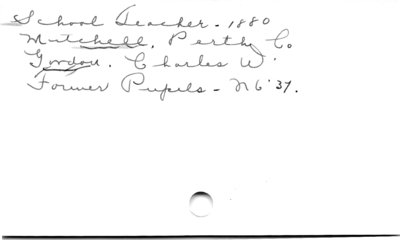 School Teacher - 1880
Mitchell, Perth Co
Gordon, Charles W.
Former Pupils - N 6 '37.